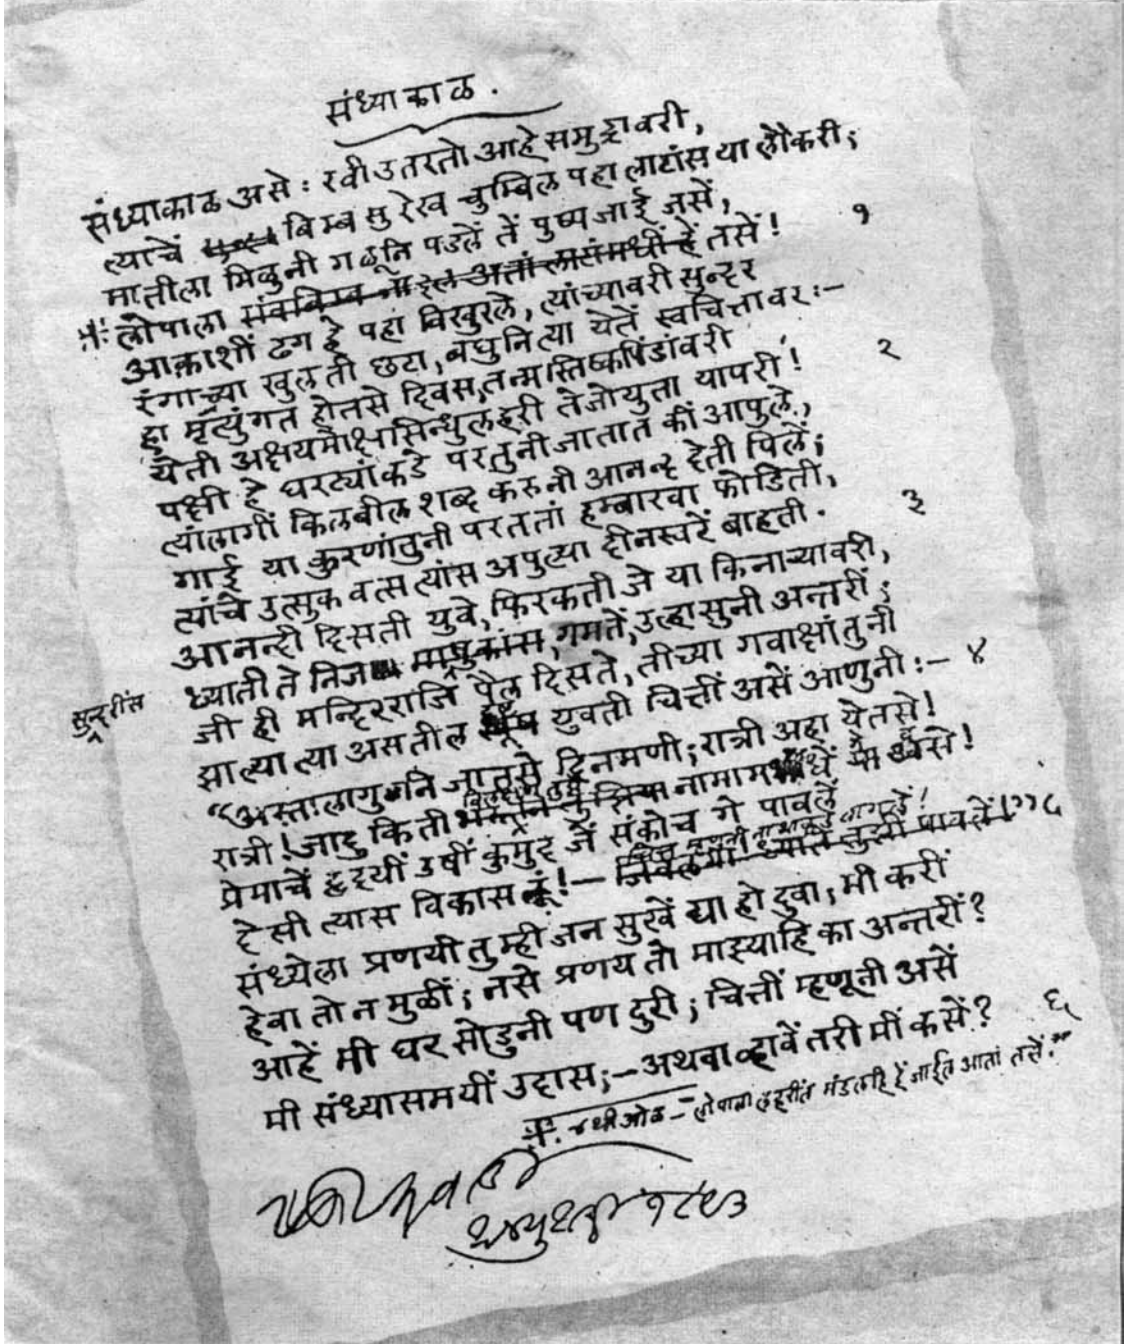 संध्याकाळ.
संध्याकाळ असे : रवी उतरतो आहे समुद्रावरी,
त्याचें बिम्ब सुरेख चुम्बिल पहा लाटांस या लौकरी;
मातीला मिळुनी गळूनि पडलें तें पुष्प जाई जसें,
लोपाला तसें! १
आकाशीं ढग हे पहा विखुरले, त्यांच्यावरी सुन्दर
रंगाच्या खुलती छटा, बघुनि त्या येतें स्वचित्तावर:-
हा मृत्युंगत होतसे दिवस, तन्मस्तिष्कपिंडांवरी
येती अक्षयमोक्षसिन्धुलहरी तेजोयुता यापरी! २
पक्षी हे घरट्यांकडे परतुनी जातात कीं आपुले,
त्यांलागीं किलबील शब्द करुनी आनन्द देती पिलें;
गाई या कुरणांतुनी परततां हम्बारवा फोडिती,
त्यांचे उत्सुक वत्स त्यांस अपुल्या दीनस्वरें बाहती. ३
आनन्दी दिसती युवे, फिरकती जे या किनाऱ्यावरी,
ध्याती ते निज सुन्दरींस, गमतें, उल्हासुनी अन्तरीं;
जी ही मन्दिरराजि पैल दिसते, तीच्या गवाक्षांतुनी
झाल्या त्या असतील युवती चित्तीं असें आणुनी:- ४
“अस्तालागुनि जातसे दिनमणी; रात्री अहा येतसे!
रात्री! जादु किती नामामधें वसे!
प्रेमाचें हृदयीं उषीं कुमुद जें संकोच गे पावलें
देसी त्यास विकास तूं!- ५
संध्येला प्रणयी तुम्ही जन सुखें द्या हो दुवा; मी करीं
हेवा तो न मुळीं; नसे प्रणय तो माझ्याहि का अन्तरीं?
आहें मी घर सोडुनी पण दुरी; चित्तीं म्हणूनी असें
मी संध्यासमयीं उदास;- अथवा व्हावें तरी मीं कसें? ६
४थी ओळ - लोपाला लहरींत मंडलहि हें जाईल आतां तसें."